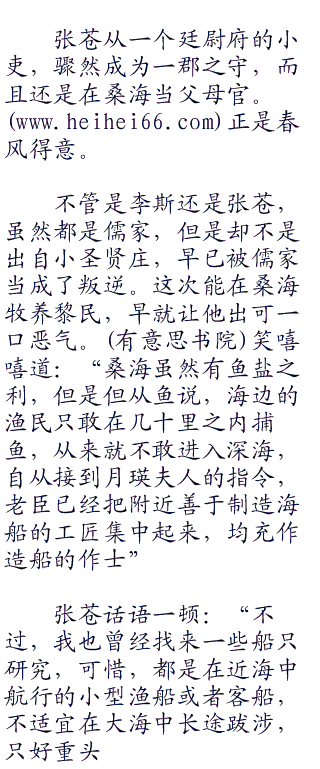 张苍从一个廷尉府的小
吏，骤然成为一郡之守，而
且还是在桑海当父母官。
(www.heihei66.com)正是春
风得意。
不管是李斯还是张苍，
虽然都是儒家，但是却不是
出自小圣贤庄，早已被儒家
当成了叛逆。这次能在桑海
牧养黎民，早就让他出可一
口恶气。(有意思书院)笑嘻
嘻道：“桑海虽然有鱼盐之
利，但是但从鱼说，海边的
渔民只敢在几十里之内捕
鱼，从来就不敢进入深海，
自从接到月瑛夫人的指令，
老臣已经把附近善于制造海
船的工匠集中起来，均充作
造船的作士”
张苍话语一顿：“不
过，我也曾经找来一些船只
研究，可惜，都是在近海中
航行的小型渔船或者客船，
不适宜在大海中长途跋涉，
只好重头